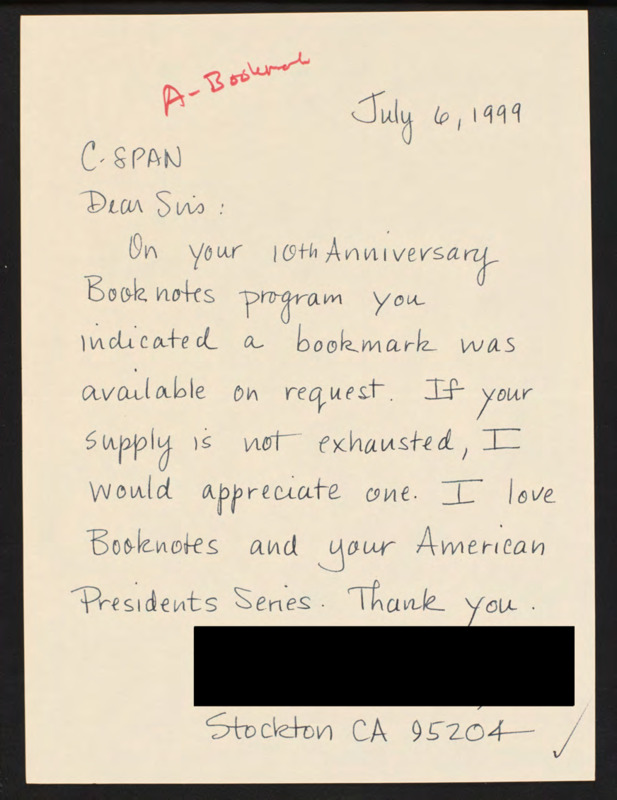 A-Bookmark
July 6, 1999
C-SPAN
Dear Sirs:
On your 10th Anniversary
Booknotes program you
indicated a bookmark was
available on request. If your
supply is not exhausted, I
would appreciate one. I love
Booknotes and your American
Presidents Series. Thank you.
Stockton CA 95204